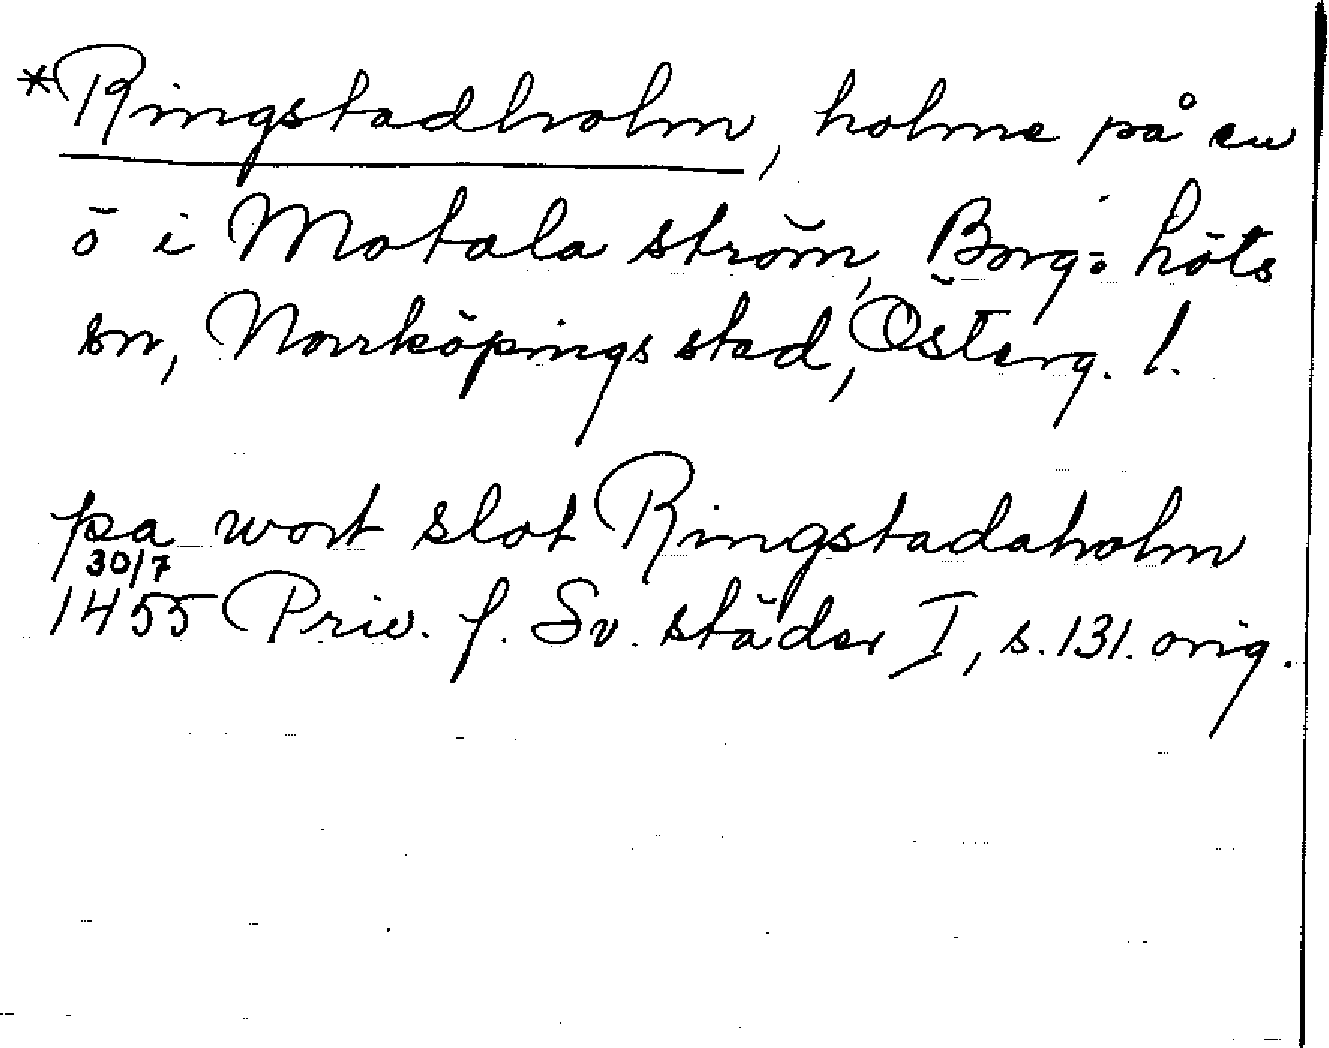 *Ringstadholm, holme på en
ö i Motala ström, Borg=höts
sn, Norrköpings stad, Österg. l.
pa wort slot Ringstadaholm
30/7
1455 Priv. f. Sv. städer I, s. 131. orig.